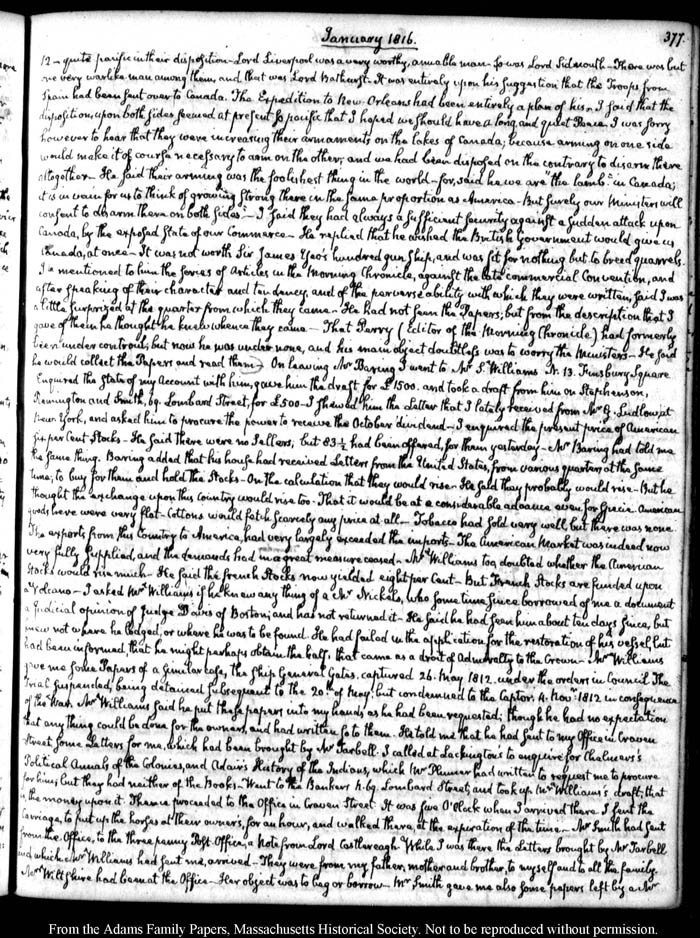 January 1816.
377.
12 - quite pacific in their disposition - Lord Liverpool was a very worthy, amiable man - so was Lord Sidmouth - There was but
one very warlike man among them, and that was Lord Bathurst. It was entirely upon his suggestion that the Troops from
Spain had been sent over to Canada. The Expedition to New Orleans had been entirely a plan of his. I said that the
disposition, upon both sides seemed at present so pacific that I hoped we should have a long and quiet Peace. I was sorry
however to hear that they were increasing their armaments on the Lakes of Canada; because arming on one side
would make it of course necessary to arm on the other; and we had been disposed on the contrary to disarm there
altogether - He said their arming was the foolishest thing in the world - for, said he we are "the lamb" in Canada;
it is in vain for us to think of growing strong there in the same proportion as America - But surely our Ministers will
consent to disarm there on both sides - I said they had always a sufficient security against a sudden attack upon
Canada, by the exposed State of our Commerce - He replied that he wished the British Government would give us
Canada, at once - It was not worth Sir James Yeo's hundred gun Ship, and was fit for nothing but to breed quarrels.
I mentioned to him the series of Articles in the Morning Chronicle, against the late commercial Convention, and
after speaking of their character and tendency, and of the perverse ability with which they were written, said I was
a little surprized at the quarter from which they came - He had not seen the Papers; but from the description that I
gave of them he thought he knew whence they came - That Perry (Editor of the Morning Chronicle) had formerly
been under controul, but now he was under none, and his main object doubtless was to worry the Ministers - He said
he would collect the Papers and read them - On leaving Mr Baring I went to Mr S. Williams Nr. 13. Finsbury Square
Enquired the State of my Account with him, gave him the draft for £1500. and took a draft from him on Stephenson,
Remington and Smith, 69. Lombard Street, for £500 - I shewed him the Letter that I lately received from Mr G. Ludlow, at
New York, and asked him to procure the power to receive the October dividend - I enquired the present price of American
six per Cent Stocks - He said there were no sellers, but 83½ had been offered, for them yesterday - Mr Baring had told me
the same thing. Baring added that his house had received Letters from the United States, from various quarters, at the same
time, to buy for them and hold the Stocks - On the calculation that they would rise - He said they probably would rise - But he
thought the exchange upon this Country would rise too - That it would be at a considerable advance even for Specie. American
goods here were very flat - Cottons would fetch scarcely any price at all - Tobacco had sold very well, but there was none.
The exports from this Country to America, had very largely exceeded the imports - The American Market was indeed now
very fully supplied, and the demands had in a great measure ceased - Mr Williams too, doubted whether the American
Stocks would rise much - He said the French Stocks now yielded eight per Cent - But French Stocks are funded upon
a Volcano - I asked Mr Williams if he knew any thing of a Mr Nickels, who some time since borrowed of me a document
a judicial opinion of Judge Davis of Boston; and has not returned it - He said he had seen him about ten days since, but
knew not where he lodged, or where he was to be found. He had failed in the application for the restoration of his vessel, but
had been informed, that he might perhaps obtain the half, that came as a droit of Admiralty to the Crown - Mr Williams
gave me some Papers of a similar case, the Ship General Gates, captured 26. May 1812. under the orders in Council. The
trial suspended, being detained subsequent to the 20th of May; but condemned to the Captor 4. Novr 1812 in consequence
of the War. Mr Williams said he put these papers into my hands as he had been requested; though he had no expectation
that any thing could be done for the owners, and had written so to them. He told me that he had sent to my Office in Craven
Street some Letters for me, which had been brought by Mr Tarbell. I called at Lackington's to enquire for Chalmers's
Political Annals of the Colonies, and Adair's History of the Indians, which Mr Plumer had written to request me to procure
for him; but they had neither of the Books - Went to the Bankers N. 69. Lombard Street, and took up Mr Williams's draft; that
is the money upon it. Thence proceeded to the Office in Craven Street. It was five O'Clock when I arrived there. I sent the
Carriage, to put up the horses at their owner's, for an hour, and walked there, at the expiration of the time - Mr Smith had sent
from the Office, to the three penny Post Office, a Note from Lord Castlereagh. While I was there the Letters brought by Mr Tarbell
and which Mr Williams had sent me, arrived - They were from my father, mother and brother, to myself and to all the family.
Mrs Wiltshire had been at the Office - Her object was to beg or borrow - Mr Smith gave me also some papers left by a Mr
From the Adams Family Papers, Massachusetts Historical Society. Not to be reproduced without permission.